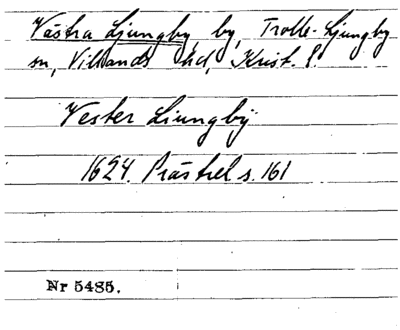 Västra Ljungby by, Trolle-Ljungby
sn, Villands hd, Krist. l.
Vester Liungbÿ
1624. Prästrel s. 161
Nr 5485.